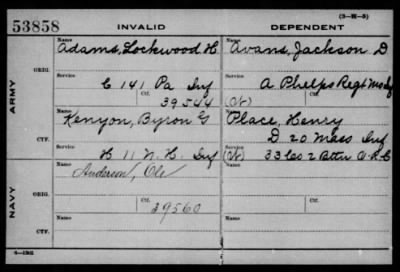 (3—M—5)
53858 INVALID DEPENDENT
Name Name
Adams, Lockwood H. Avans, Jackson D
ORIG.
Service Service
C 141 Pa Inf A Phelps Regt Mo Inf
Ctf. Ctf.
39544 (Ct)
ARMY
Name Name
Kenyon, Byron G Place, Henry
D 20 Mass Inf
CTF.
Service Service
H 11 N. H. Inf (Ct) 33 Co 2 Battn V R C
Name Name
Anderson, Ole
ORIG.
Ctf. Ctf.
39560
NAVY
Name Name
CTF.